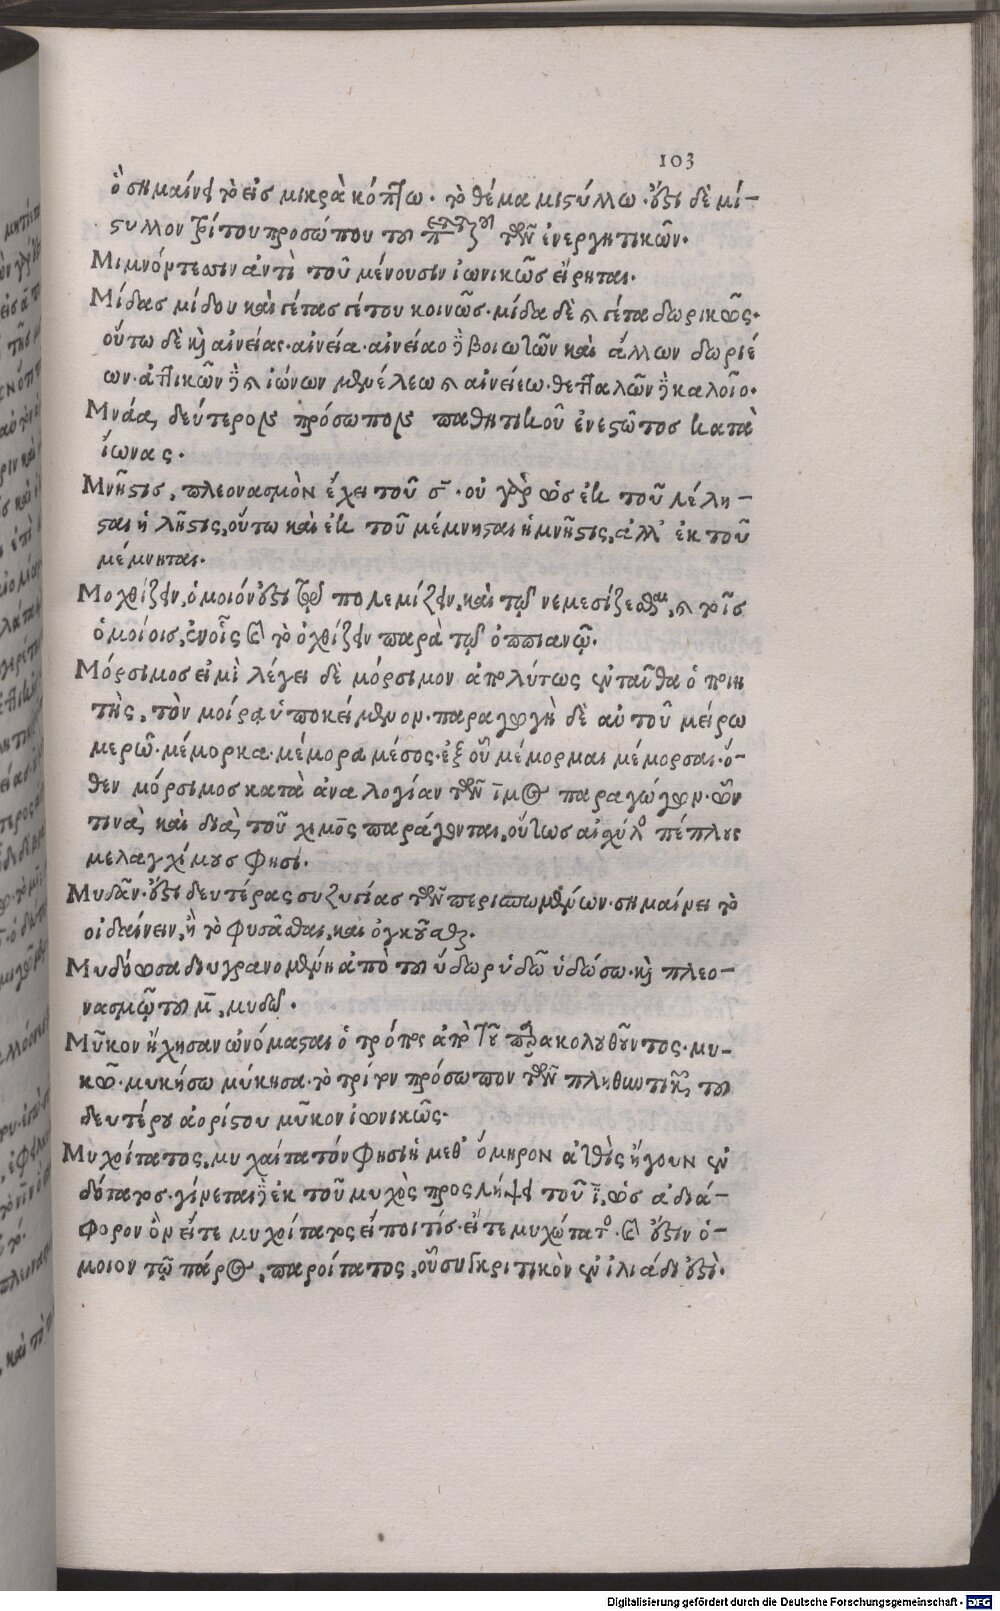 103
ὃ σημαίνει τὸ εἰσ μικρὰ κόπτω. τὸ θέμα μιστύλλω. ἔστι δὲ μί-
στυλλον τρίτου προσώπου τοῦ τῶν ἐνεργητικῶν.
Μιμνόντεσιν ἀντὶ τοῦ μένουσιν ἰωνικῶσ εἴρηται.
Μίδασ μίδου καὶ σίτασ σίτου κοινῶσ. μίδα δὲ καὶ σίτα δωρικῶς.
οὕτω δὲ καὶ αἰνείας. αἰνεία. αἰνείαο δὲ βοιωτῶν καὶ ἄλλων δωριέ
ων. ἀττικῶν δὲ καὶ ἰώνων μενέλεω καὶ αἰνείεω. θετταλῶν δὲ καλοῖο.
Μνάα, δεύτερον πρόσωπον παθητικοῦ ἐνεστῶτοσ κατὰ
ἴωνας.
Μνῆστις, πλεονασμὸν ἔχει τοῦ σ̅. οὐ γὰρ ὡσ ἐκ τοῦ λέλη-
σται ἡ λῆστις, οὕτω καὶ ἐκ τοῦ μέμνησται ἡ μνῆστις, ἀλλ' ἐκ τοῦ
μέμνηται.
Μοχθίζειν, ὁμοιόν ἐστι τῷ πολεμίζειν, καὶ τῷ νεμεσίζεσθαι, καὶ τοῖσ
ὁμοίοισ, ἐν οἷς καὶ τὸ ὀχθίζειν παρὰ τῷ ὀππιανῷ.
Μόρσιμοσ εἰμὶ λέγει δὲ μόρσιμον ἀπολύτως ἐνταῦθα ὁ ποιη
τὴς, τὸν μοίρᾳ ὑποκείμενον. παραγωγὴ δὲ αὐτοῦ μείρω
μερῶ. μέμορκα. μέμορα μέσος. ἐξ οὗ μέμορμαι μέμορσαι. ὅ-
θεν μόρσιμοσ κατὰ ἀναλογίαν τῶν ι̅μος παραγώγων. ὧν
τινὰ, καὶ διὰ, τοῦ χιμο̅ς παράγονται, οὕτωσ αἰσχύλος πέπλους
μελαγχίμουσ φησί.
Μυδᾶν. ἔστι δευτέρας συζυγίας τῶν περισπωμένων. σημαίνει τὸ
οἰδαίνειν, ἢ τὸ φυσᾶσθαι, καὶ ὀγκοῦσθαι.
Μυδόωσα διυγρανομένη ἀπὸ τοῦ ὕδωρ ὑδῶ ὑδώσω. καὶ πλεο-
νασμῷ τοῦ μ̅, μυδῶ.
Μῦκον ἤχησαν ὠνόμασται ὁ τρόπος ἀπὸ τοῦ παρακολουθοῦντος. μυ-
κῶ. μυκήσω μύκησα. τὸ τρίτον πρόσωπον τῶν πληθυντικῶν τοῦ
δευτέρου ἀορίστου μῦκον ἰωνικῶς.
Μυχοίτατος, μυχαίτατόν φησιν ἡ μεθ' ὅμηρον ἀτθὶς ἤγουν ἐν
δότατος. γίνεται δὲ ἐκ τοῦ μυχὸς προσλήψει τοῦ ϊ, ὡσ ἀδιά-
φορον ὂν εἴτε μυχοίτατος εἴποι τίσ. εἴτε μυχώτατος. καὶ ἔστιν ὅ-
μοιον τῷ πάρος, παροίτατος, οὗ συγκριτικὸν ἐν ἰλιάδι ἐστὶ.
Digitalisierung gefördert durch die Deutsche Forschungsgemeinschaft - DFG